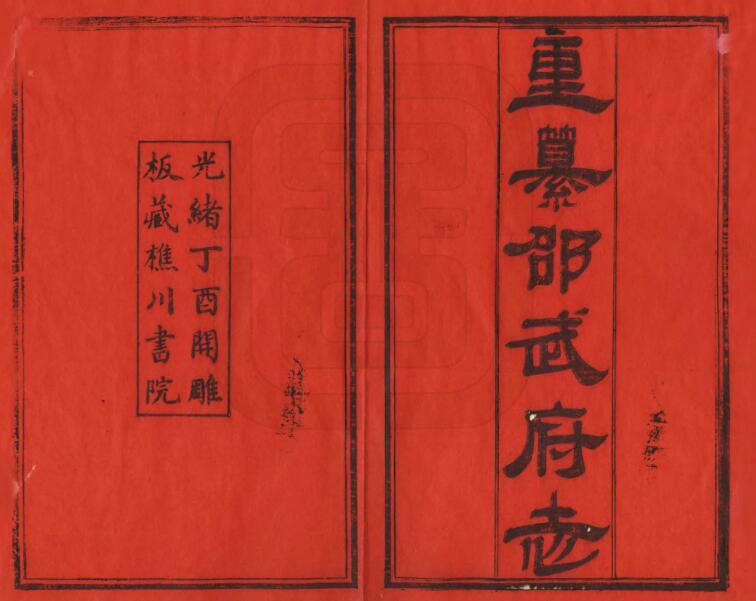 重纂邵武府志
光緒丁酉開雕
板藏樵川書院